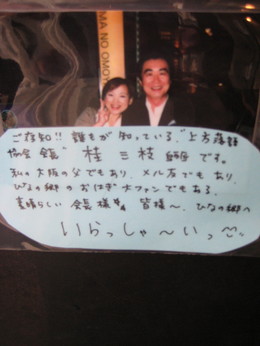 MA NO OMOT
ご存知!! 誰もが知っている、"上方落語
協会 会長" 桂 三枝 師匠 です。
私の大阪の父でもあり、メル友でもあり、
ひなの郷のおはぎ大ファンでもある、
素晴らしい 会長様 皆様〜、ひなの郷へ
いらっしゃ〜いっ